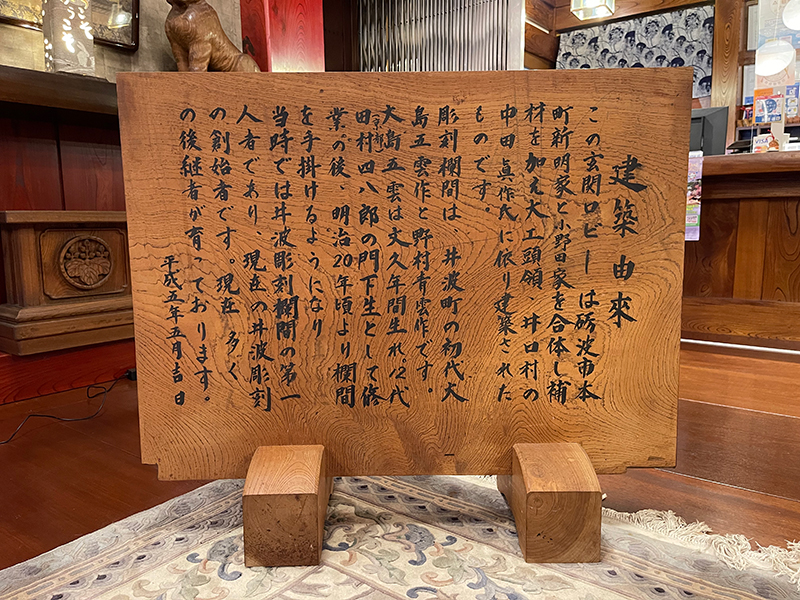 建築由來
この玄関ロビーは砺波市本
町新明家と小野田家を合体し補
材を加え大工頭領、井口村の
中田眞作氏に依り建築された
ものです。
彫刻欄間は、井波町の初代大
島五雲作と野村青雲作です。
大島五雲は文久年間生れ、12代
田村四八郎の門下生として修
業の後、明治20年頃より欄間
を手掛けるようになり
当時では井波彫刻欄間の第一
人者であり、現在の井波彫刻
の創始者です。現在 多く
の後継者が育っております。
平成五年五月吉日
VISA